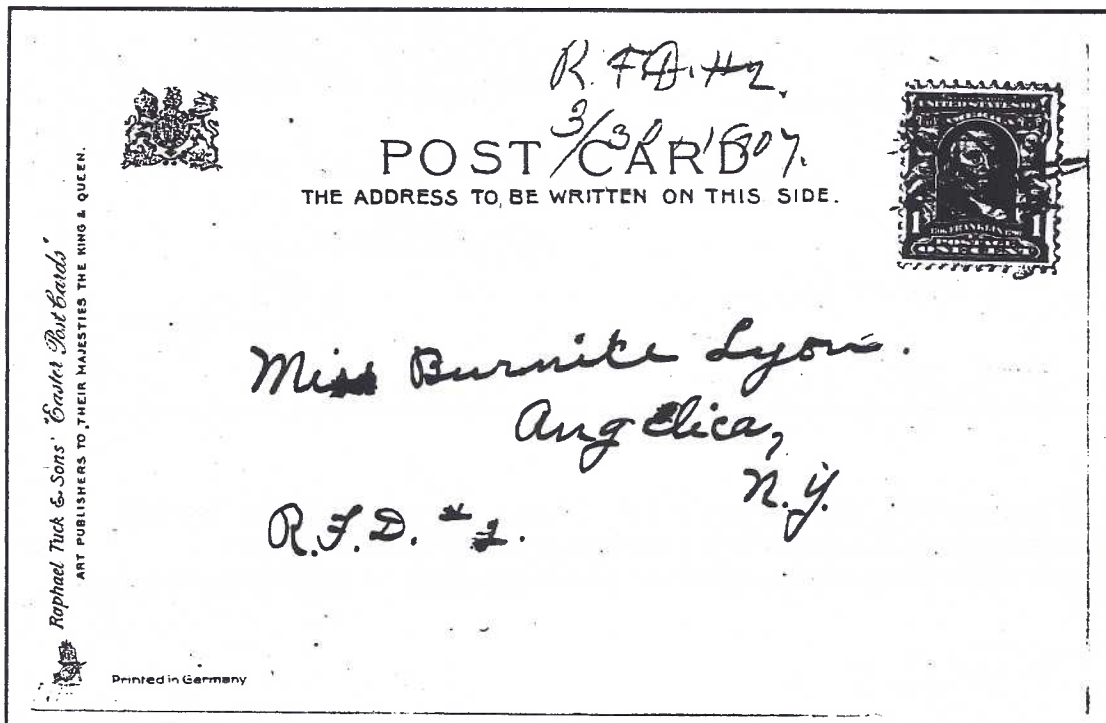 R. F. D. #2.
3/30-1907.
POST CARD
THE ADDRESS TO BE WRITTEN ON THIS SIDE.
UNITED STATES OF
1 FRANKLIN 1
POSTAGE
ONE CENT
Miss Burnite Lyon.
Angelica,
N.Y.
R.F.D. #2.
Raphael Tuck & Sons' "Easter Post Cards"
ART PUBLISHERS TO THEIR MAJESTIES THE KING & QUEEN.
Printed in Germany